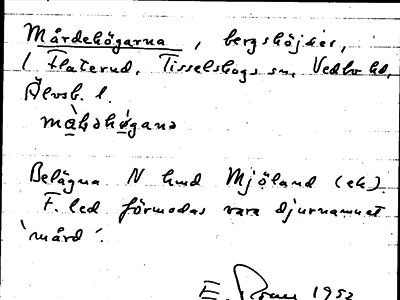 Mårdehögarna, bergshöjder,
i Flaterud, Tisselskogs sn, Vedbo hd,
Älvsb. l.
Belägna N hmd Mjöland (ek)
F. led förmodas vara djurnamnet
'mård'.
E. 1952